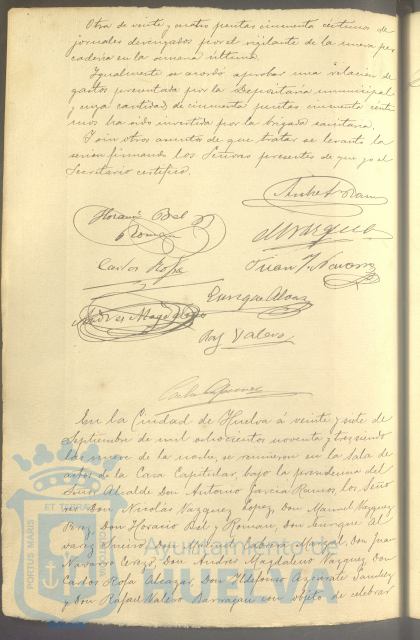 Otra de veinte y cuatro pesetas cincuenta céntimos de
jornales devengados por el vigilante de la nueva pes
cadería en la semana última.
Igualmente se acordó aprobar una relación de
gastos presentada por la Depositaría municipal
y cuya cantidad de cincuenta pesetas cincuenta cénti
mos ha sido invertida por la brigada sanitaria.
Y sin otros asuntos de que tratar se levantó la
sesión firmando los Señores presentes de que yo el
Secretario certifico.
Horacio Bel
Roman
M Vazquez
Carlos Rofa
Juan J. Navarro
Enrique Alvarez
Andres Magdaleno
Raf Valero
En la Ciudad de Huelva á veinte y siete de
Septiembre de mil ochocientos noventa y tres siendo
las nueve de la noche, se reunieron en la sala de
actos de la Casa Capitular, bajo la presidencia del
Señor Alcalde Don Antonio García Ramos, los Seño
res Don Nicolás Vazquez Lopez, Don Manuel Vazquez
Don Horacio Bel y Roman, Don Enrique Al
varez
Don Juan
Navarro Cerezo, Don Andrés Magdaleno Vazquez, Don
Carlos Rofa Alcazar, Don Ildefonso Azcarate
y Don Rafael Valero Barragan con objeto de celebrar
ET TERRAE
PORTUS MARIS
CUSTODIA
Ayuntamiento de
HUELVA